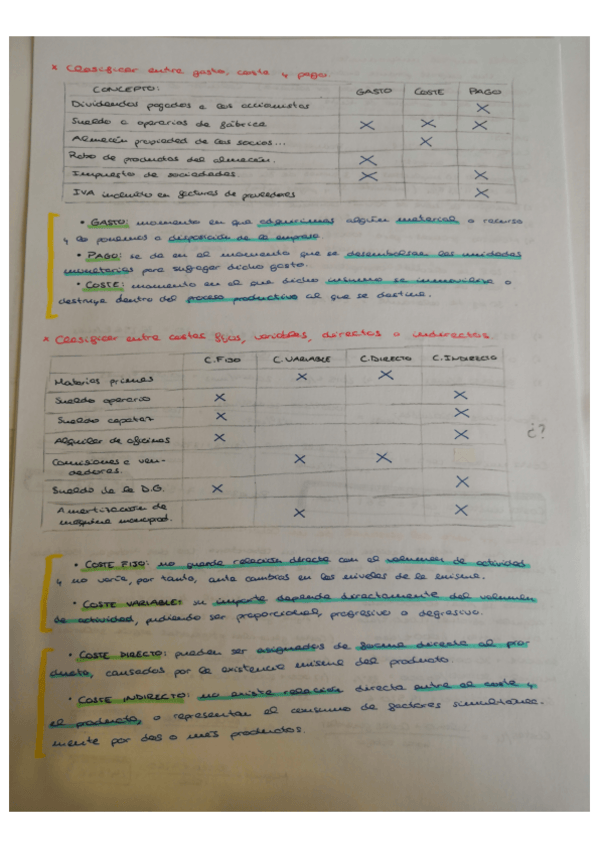 * Clasificar entre gasto, coste y pago.
CONCEPTO: GASTO COSTE PAGO
Dividendos pagados a los accionistas X
Sueldo a operarios de fábrica X X X
Almacén propiedad de los socios... X
Robo de productos del almacén. X
Impuesto de sociedades X X
IVA incluido en facturas de proveedores X
• GASTO: momento en que adquirimos algún material o recurso
y lo ponemos a disposición de la empresa.
• PAGO: se da en el momento que se desembolsan las unidades
monetarias para sufragar dicho gasto.
• COSTE: momento en el que dicho insumo se inmoviliza o
destruye dentro del proceso productivo al que se destine.
* Clasificar entre costes fijos, variables, directos o indirectos.
C. FIJO C. VARIABLE C. DIRECTO C. INDIRECTO
Materias primas X X
Sueldo operario X X
Sueldo capataz X X
Alquiler de oficinas X X
¿?
Comisiones a ven-
dedores. X X
Sueldo de la D.G. X X
Amortización de
máquina monoprod. X X
• COSTE FIJO: no guarda relación directa con el volumen de actividad
y no varía, por tanto, ante cambios en los niveles de la misma.
• COSTE VARIABLE: su importe depende directamente del volumen
de actividad, pudiendo ser proporcional, progresivo o degresivo.
• COSTE DIRECTO: pueden ser asignados de forma directa al pro
ducto, causados por la existencia misma del producto.
• COSTE INDIRECTO: no existe relación directa entre el coste y
el producto, o representan el consumo de factores simultánea-
mente por dos o más productos.